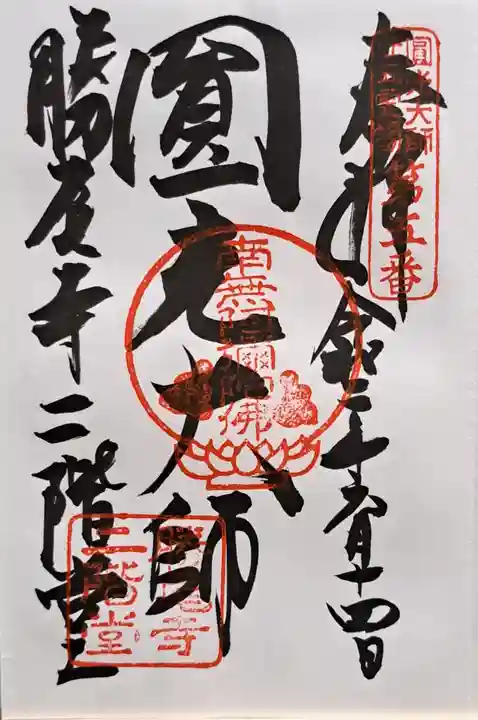 奉拝
令和二年六月十四日
圓光大師
勝尾寺二階堂
圓光大師
第五番
南無阿彌陀佛
勝尾寺
二階堂